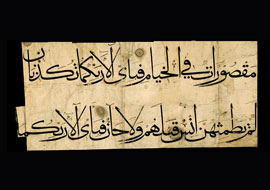 مقصورات في الخيام فبأي آلاء ربكما تكذبان
لم يطمثهن إنس قبلهم ولا جان فبأي آلاء ربكما